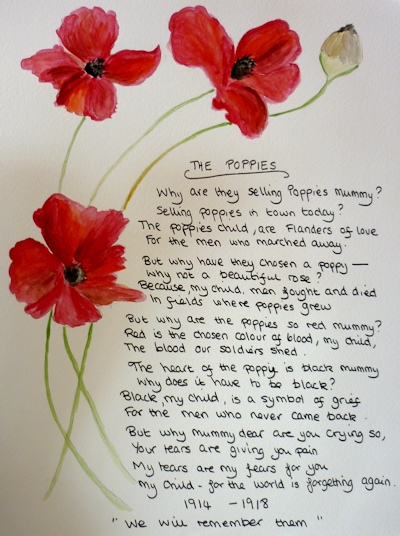 THE POPPIES
Why are they selling Poppies Mummy?
Selling poppies in town today?
The poppies child, are Flanders of love
For the men who marched away.
But why have they chosen a poppy —
Why not a beautiful rose?
Because, my child, men fought and died
In fields where poppies grew
But why are the poppies so red mummy?
Red is the chosen colour of blood, my child,
The blood our soldiers shed.
The heart of the poppy is black mummy
Why does it have to be black?
Black, my child, is a symbol of grief
For the men who never came back.
But why mummy dear are you crying so,
Your tears are giving you pain
My tears are my fears for you
my child - for the world is forgetting again.
1914 - 1918
"We will remember them"